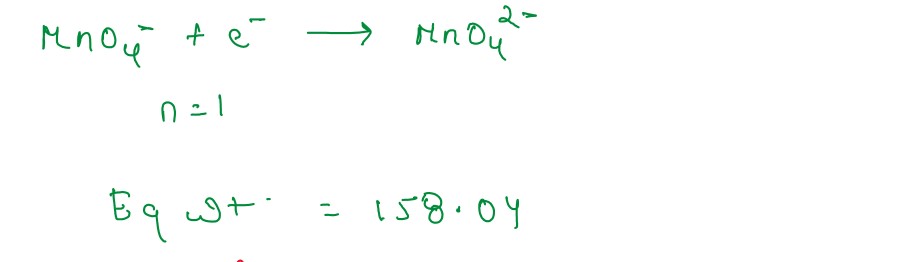 MnO₄⁻ + e⁻ ⟶ MnO₄²⁻
n = 1
Eq wt. = 158.04